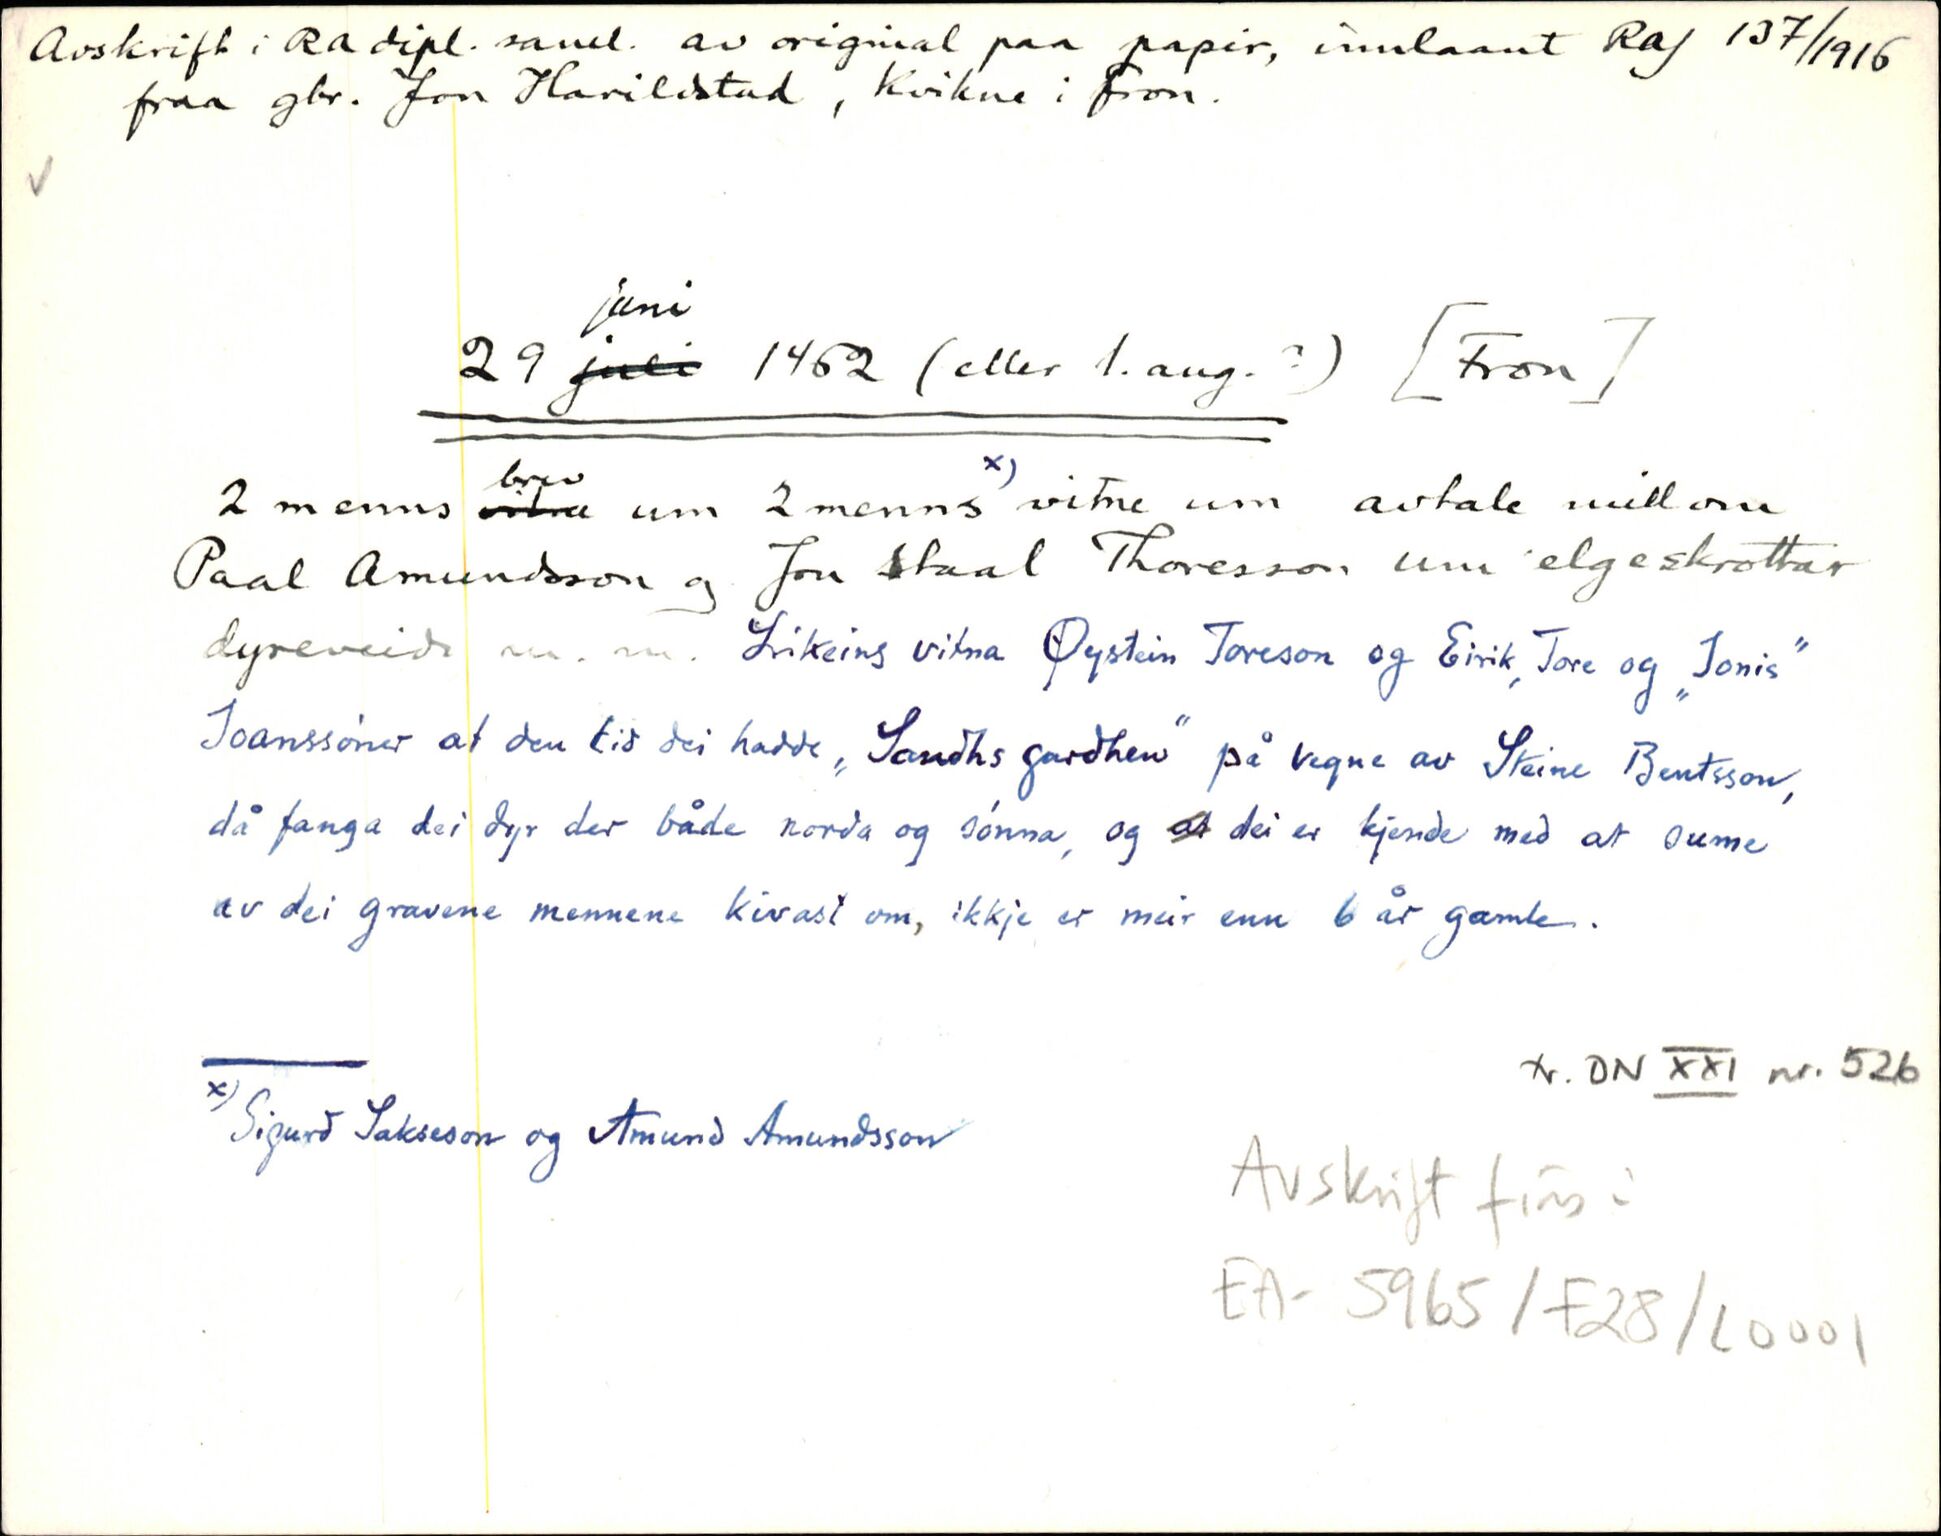 Avskrift i RA dipl. saml. av original paa papir, innlaant RAJ 137/1916
fraa gbr. Jon Harildstad, Kvikne i Fron.
juni
29 juli 1462 (eller 1. aug.?) [Fron]
brev
2 menns vitne um 2 menns x) vitne um avtale millom
Paal Amundsson og Jon Staal Thoresson um elgeskrottar
dyreveide m. m. Likeins vitna Øystein Toreson og Eirik, Tore og „Jonis"
Joanssóner at den tid dei hadde „Sandhs gardhen" på vegne av Steine Bentsson,
då fanga dei dyr der både norda og sónna, og at dei er kjende med at sume
av dei gravene mennene kivast om, ikkje er meir enn 6 år gamle.
tr. DN XXI nr. 526
x) Sigurd Sakseson og Amund Amundsson
Avskrift fins i
EA- 5965/F28/L0001